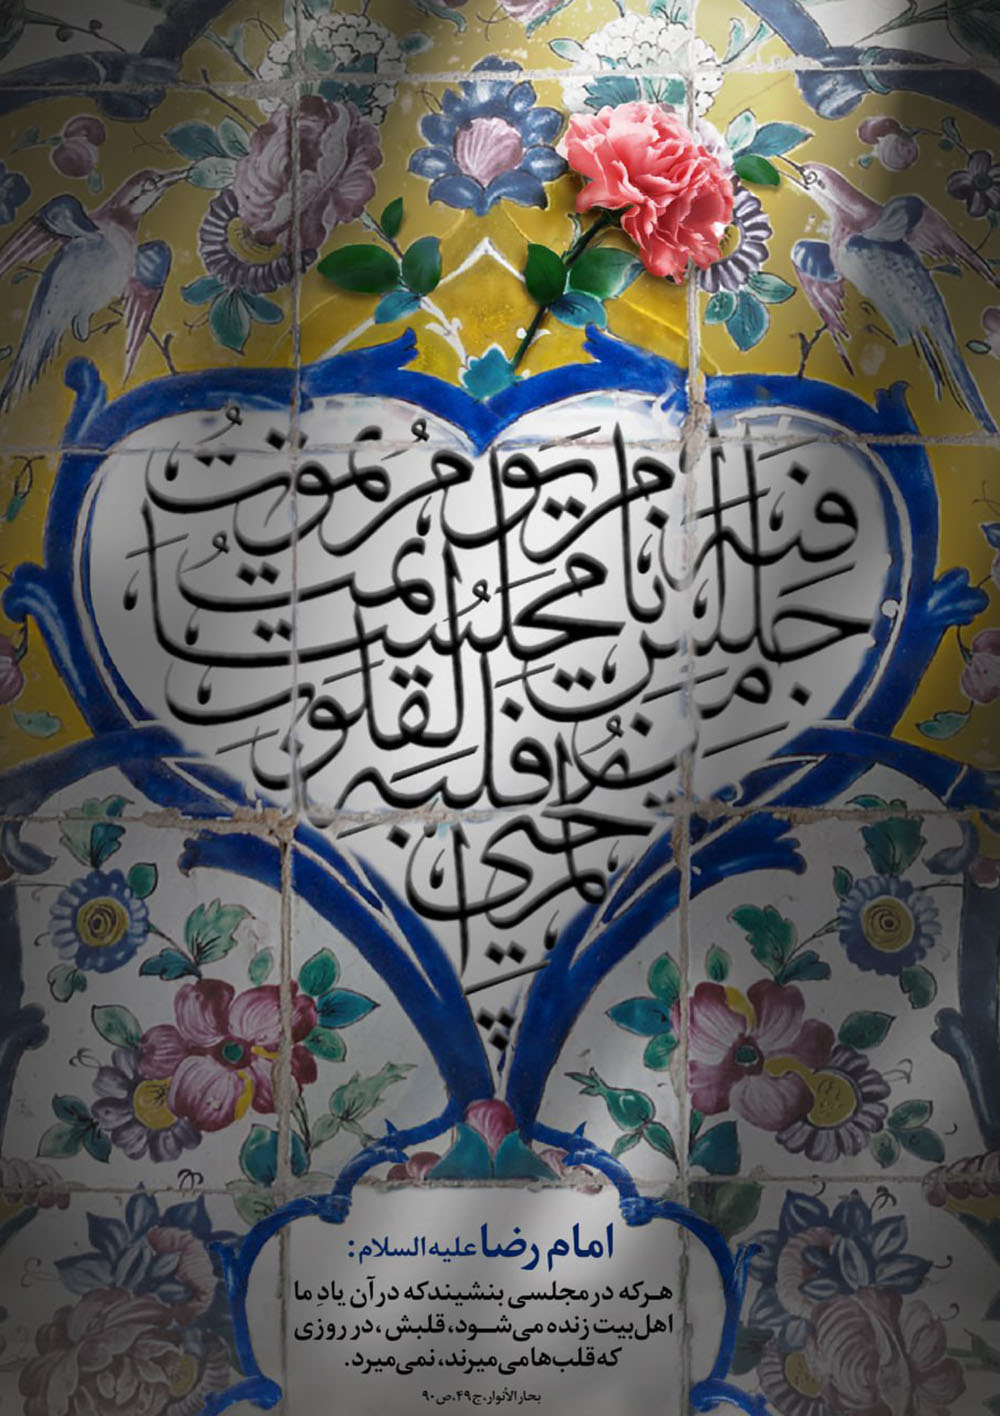 من جلس مجلسا یحیی فیه امرنا لم یمت قلبه یوم تموت القلوب
امام رضا علیه السلام:
هرکه در مجلسی بنشیند که در آن یادِ ما
اهل‌بیت زنده می‌شود، قلبش، در روزی
که قلب‌ها می‌میرند، نمی‌میرد.
بحارالأنوار، ج۴۹، ص۹۰